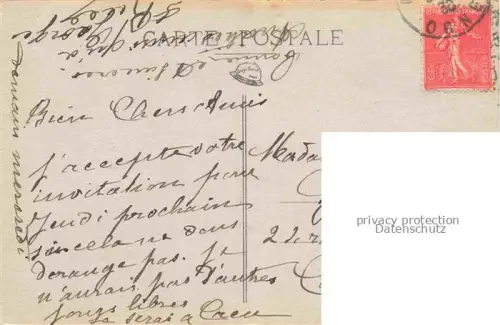 CARTE POSTALE
Bien Chers Amis
J'accepte votre
invitation pour
Jeudi prochain
si cela ne vous
derange pas. Je
n'aurais pas d'autres
jours libres
Je serai a Caen
demain mercredi
Bonne et sincère
Georges
Mada
22, r
privacy protection
Datenschutz
ORNE